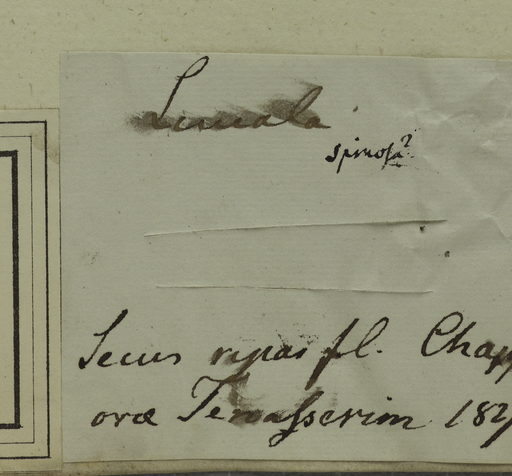 spinosa?
Secus ripas fl. Chapp
oræ Tenasserim 182